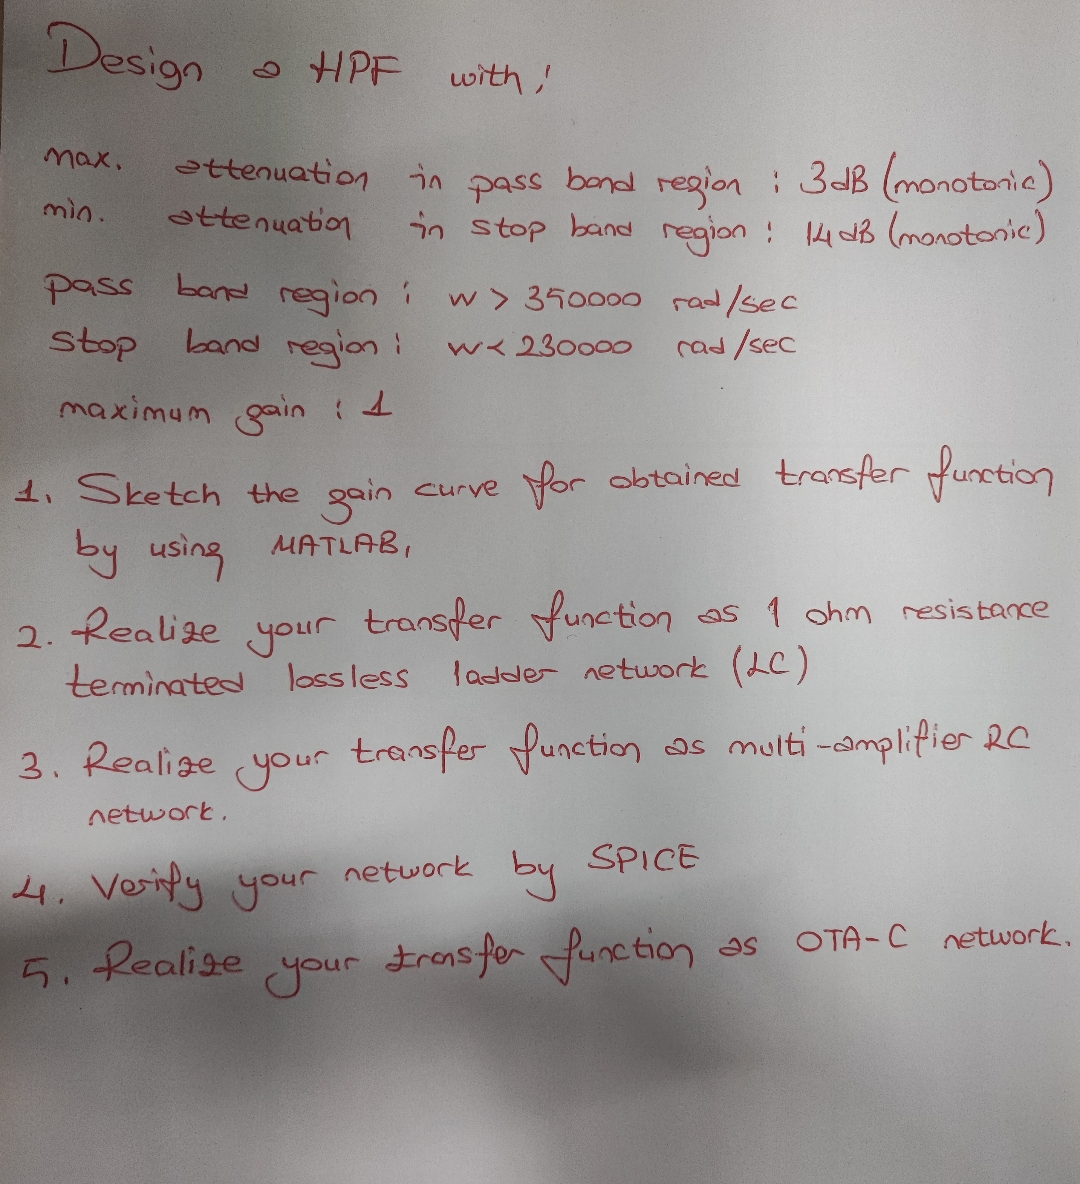 Design a HPF with;
max. attenuation in pass band region : 3dB (monotonic)
min. attenuation in stop band region : 14 dB (monotonic)
pass band region : w > 350000 rad/sec
stop band region : w < 230000 rad/sec
maximum gain : 1
1. Sketch the gain curve for obtained transfer function
by using MATLAB,
2. Realize your transfer function as 1 ohm resistance
terminated lossless ladder network (LC)
3. Realize your transfer function as multi-amplifier RC
network.
4. Verify your network by SPICE
5. Realize your transfer function as OTA-C network.